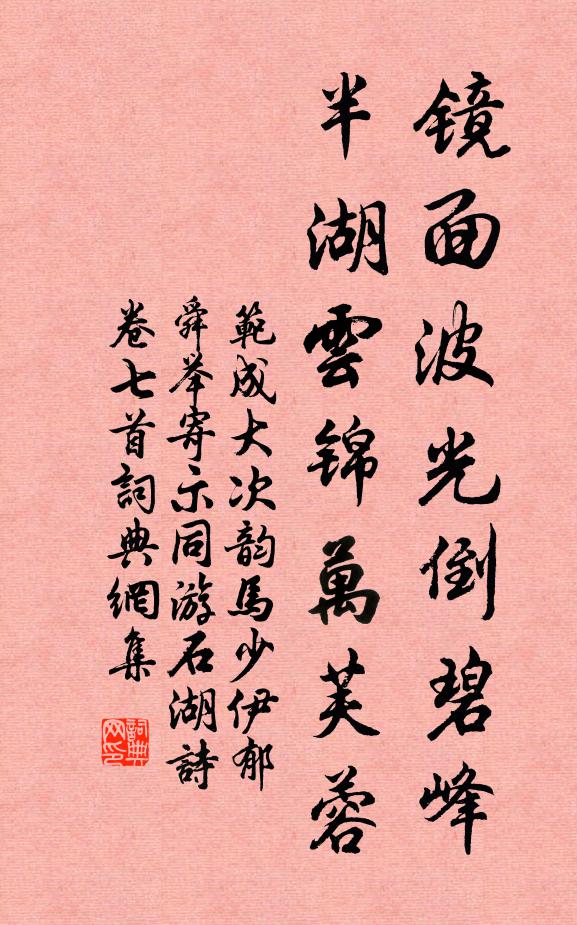 镜面波光倒碧峰
半湖雲锦萬芙蓉
範成大次韵馬少伊郁
舜举寄示同游石湖詩
卷七首詞典網集
詞典网印